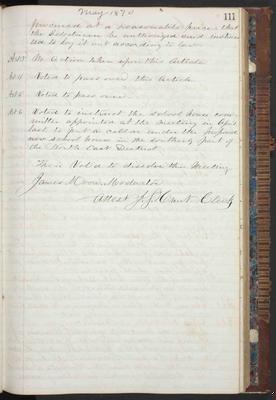 May 1870
111
purchased at a reasonable price that
the Selectmen be authorized and instruc
ted to lay it out according to law
Art 3 No action taken upon this Article
Art 4 Voted to pass over this Article
Art 5 Voted to pass over
Art 6 Voted to instruct the school house com
mittee appointed at the meeting in April
last to put a cellar under the proposed
new school house in the southerly part of
the North East District
Then Voted to dissolve this Meeting
James Moderator
Attest J. S. Hunt Clerk